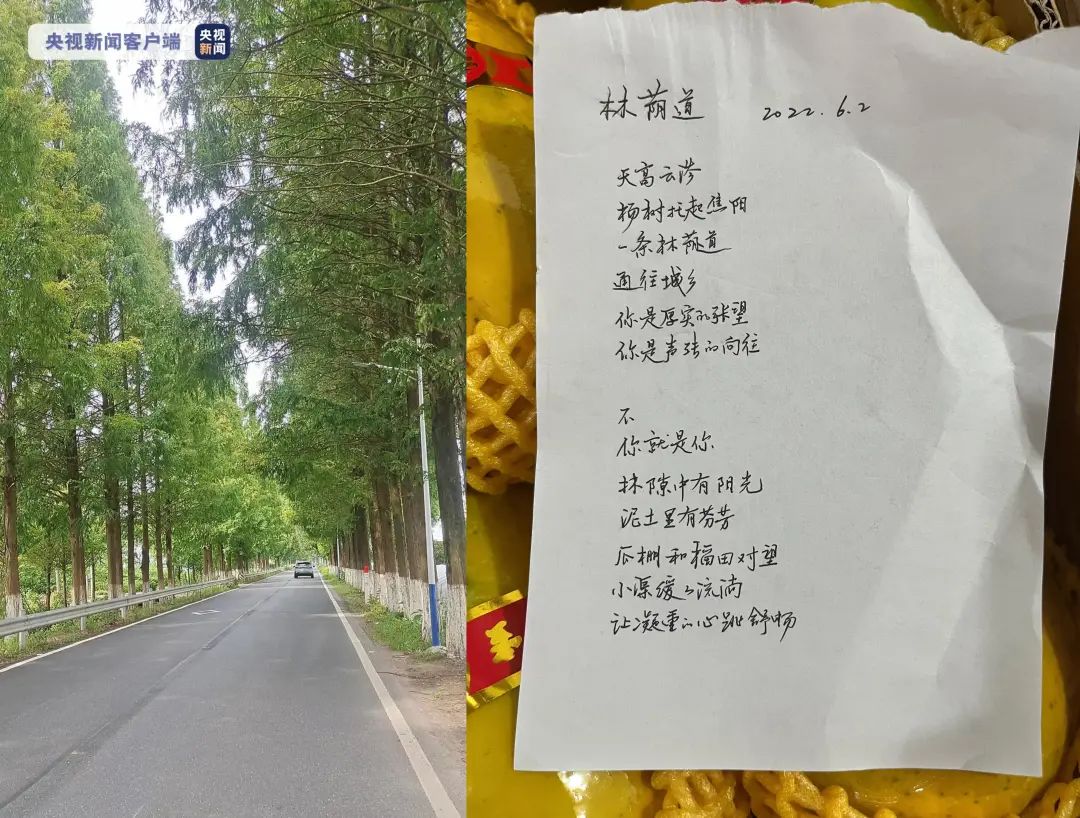 央视新闻客户端
央视
新闻
林荫道 2022.6.2
天高云淡
杨树托起焦阳
一条林荫道
通往城乡
你是厚实的张望
你是声张的向往
不
你就是你
林隙中有阳光
泥土里有芬芳
瓜棚和稻田对望
小渠缓缓流淌
让凝重的心跳舒畅